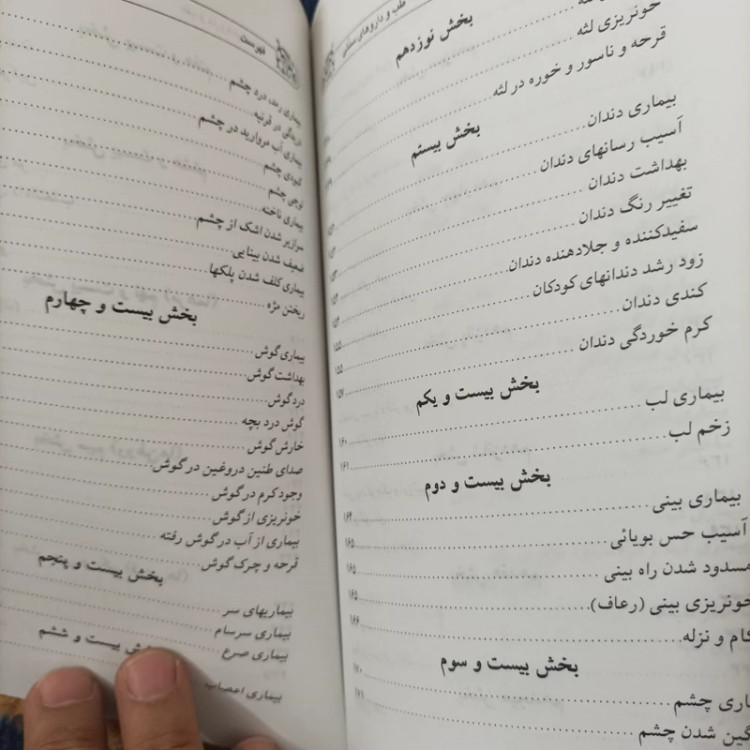 طب و داروهای سنتی
بخش نوزدهم
خونریزی لثه
قرحه و ناسور و خوره در لثه
بخش بیستم
بیماری دندان
آسیب رسانهای دندان
بهداشت دندان
تغییر رنگ دندان
سفیدکننده و جلادهنده دندان
زود رشد دندانهای کودکان
کندی دندان ۱۵۵
کرم خوردگی دندان ۱۵۷
بخش بیست و یکم
بیماری لب ۱۶۰
زخم لب ۱۶۱
بخش بیست و دوم
بیماری بینی ۱۶۴
آسیب حس بویائی ۱۶۵
مسدود شدن راه بینی ۱۶۵
خونریزی بینی (رعاف) ۱۶۵
زکام و نزله ۱۶۶
بخش بیست و سوم
بیماری چشم ۱۷۰
شدن چشم
فهرست
بیماری رمد، درد چشم
در قرنیه
بیماری آب مروارید در چشم
کبودی چشم
لوچی چشم
بیماری ناخنه
سرازیر شدن اشک از چشم
ضعیف شدن بینایی
بیماری کلفت شدن پلکها
ریختن مژه
بخش بیست و چهارم
بیماری گوش
بهداشت گوش
درد گوش
گوش درد بچه
خارش گوش
صدای طنین دروغین در گوش
وجود کرم در گوش
خونریزی از گوش
بیماری از آب در گوش رفته
قرحه و چرک گوش
بخش بیست و پنجم
بیماریهای سر
بیماری سرسام
بیماری صرع
بخش بیست و ششم
بیماری اعصاب